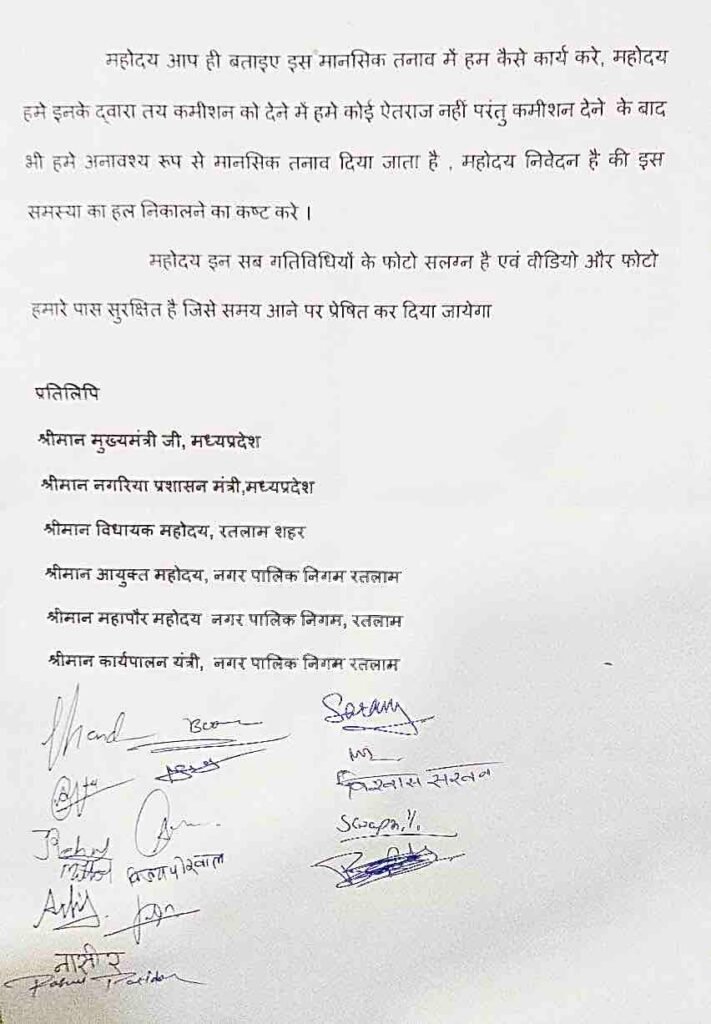 महोदय आप ही बताइए इस मानसिक तनाव में हम कैसे कार्य करे, महोदय
हमे इनके द्वारा तय कमीशन को देने में हमे कोई ऐतराज नहीं परंतु कमीशन देने के बाद
भी हमे अनावश्य रूप से मानसिक तनाव दिया जाता है , महोदय निवेदन है की इस
समस्या का हल निकालने का कष्ट करे ।
महोदय इन सब गतिविधियों के फोटो सलग्न है एवं वीडियो और फोटो
हमारे पास सुरक्षित है जिसे समय आने पर प्रेषित कर दिया जायेगा
प्रतिलिपि
श्रीमान मुख्यमंत्री जी, मध्यप्रदेश
श्रीमान नगरिया प्रशासन मंत्री,मध्यप्रदेश
श्रीमान विधायक महोदय, रतलाम शहर
श्रीमान आयुक्त महोदय, नगर पालिक निगम रतलाम
श्रीमान महापौर महोदय नगर पालिक निगम, रतलाम
श्रीमान कार्यपालन यंत्री, नगर पालिक निगम रतलाम
नासीर